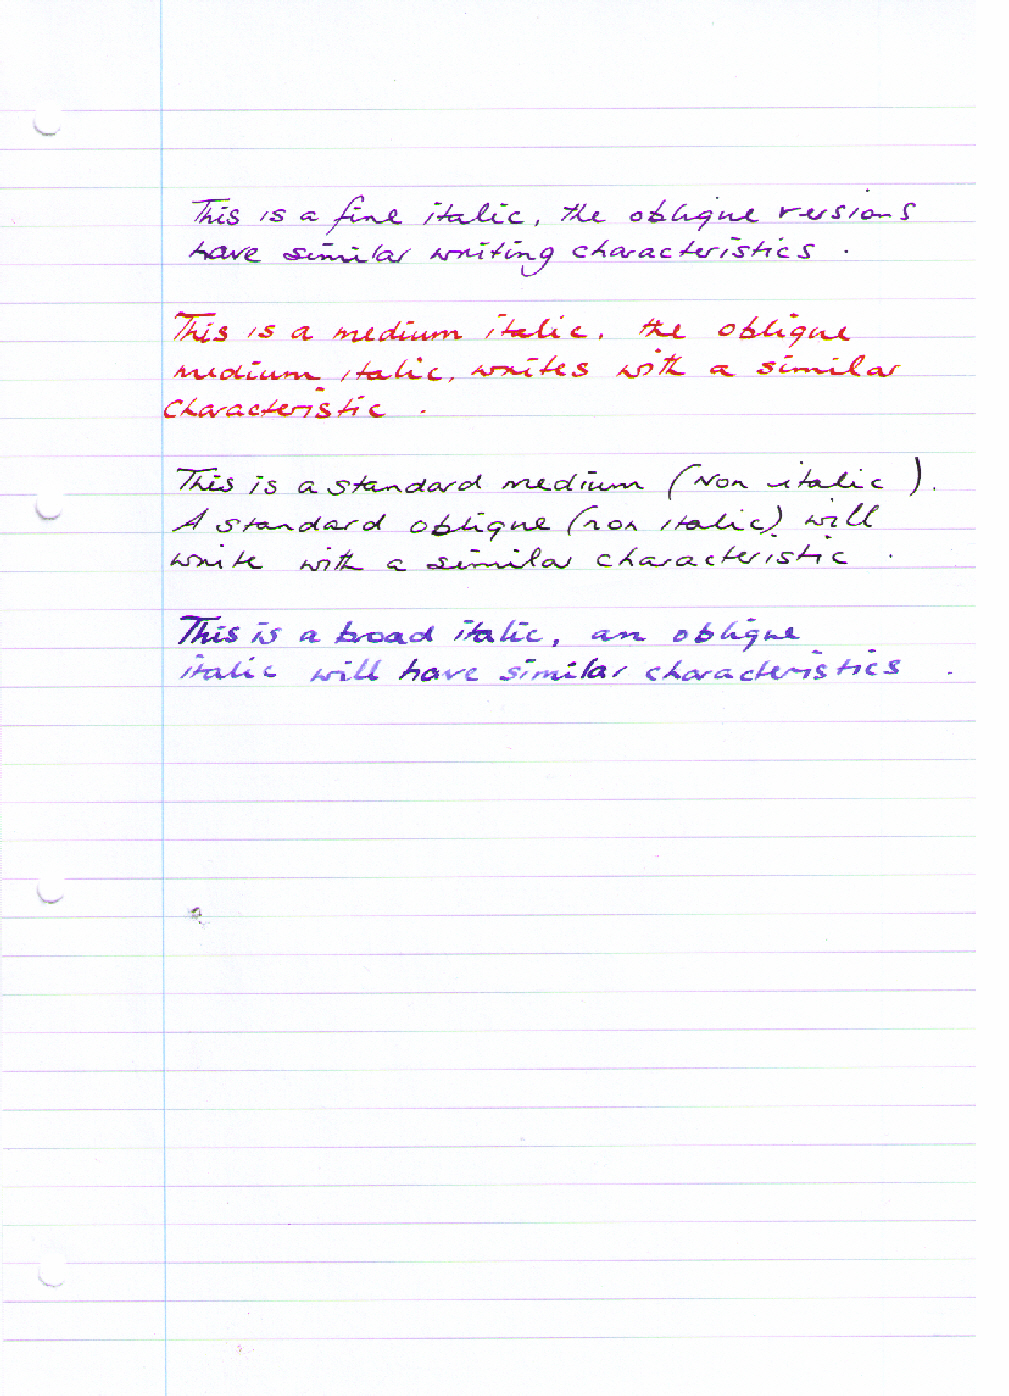 This is a fine italic, the oblique versions
have similar writing characteristics.
This is a medium italic, the oblique
medium italic, writes with a similar
characteristic.
This is a standard medium (Non italic).
A standard oblique (non italic) will
write with a similar characteristic.
This is a broad italic, an oblique
italic will have similar characteristics.